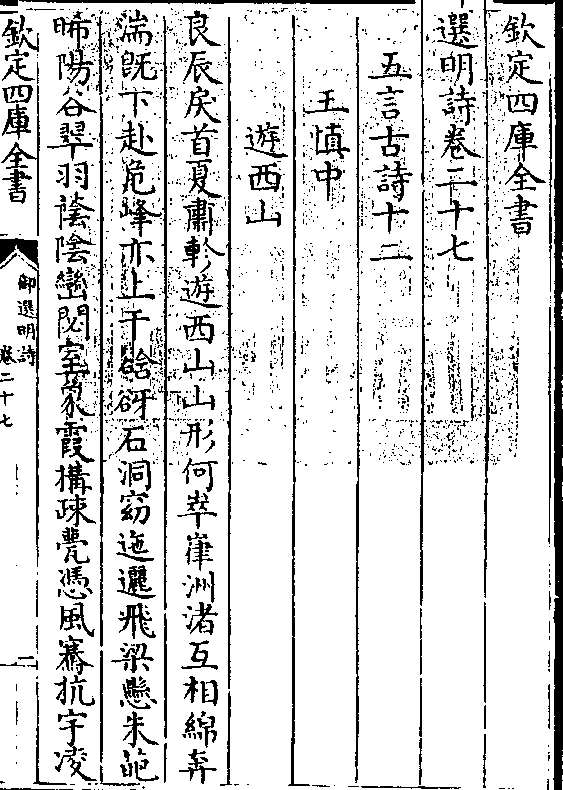 欽定四庫全書
選明詩卷二十七
五言古詩十二
王慎中
遊西山
良辰戾首夏肅軫遊西山山形何崒嵂洲渚互相綿奔
湍既下赴危峰亦上干谽谺石洞窈迤邐飛梁懸朱葩
晞陽谷翠羽蔭陰巒閟室冡霞構疎甍憑風騫抗宇凌
欽定四庫全書
御選明詩
卷二十七
一